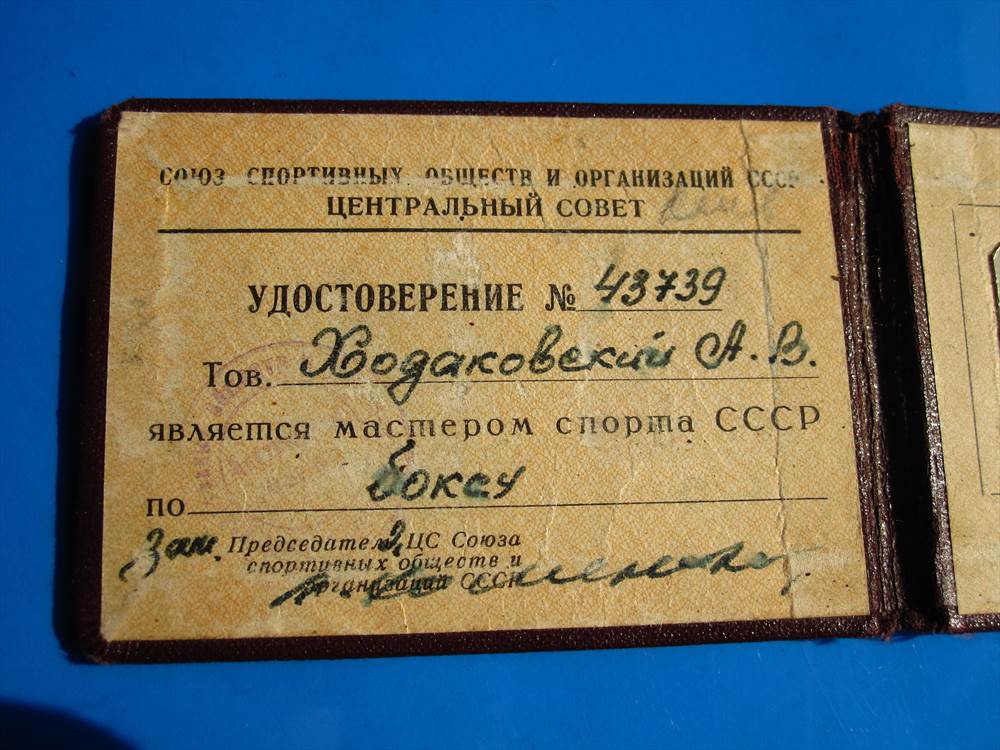 СОЮЗ СПОРТИВНЫХ ОБЩЕСТВ И ОРГАНИЗАЦИЙ СССР
ЦЕНТРАЛЬНЫЙ СОВЕТ
УДОСТОВЕРЕНИЕ № 43739
Тов. Ходаковский А. В.
является мастером спорта СССР
по боксу
Зам. Председателя ЦС Союза
спортивных обществ и
организаций СССР